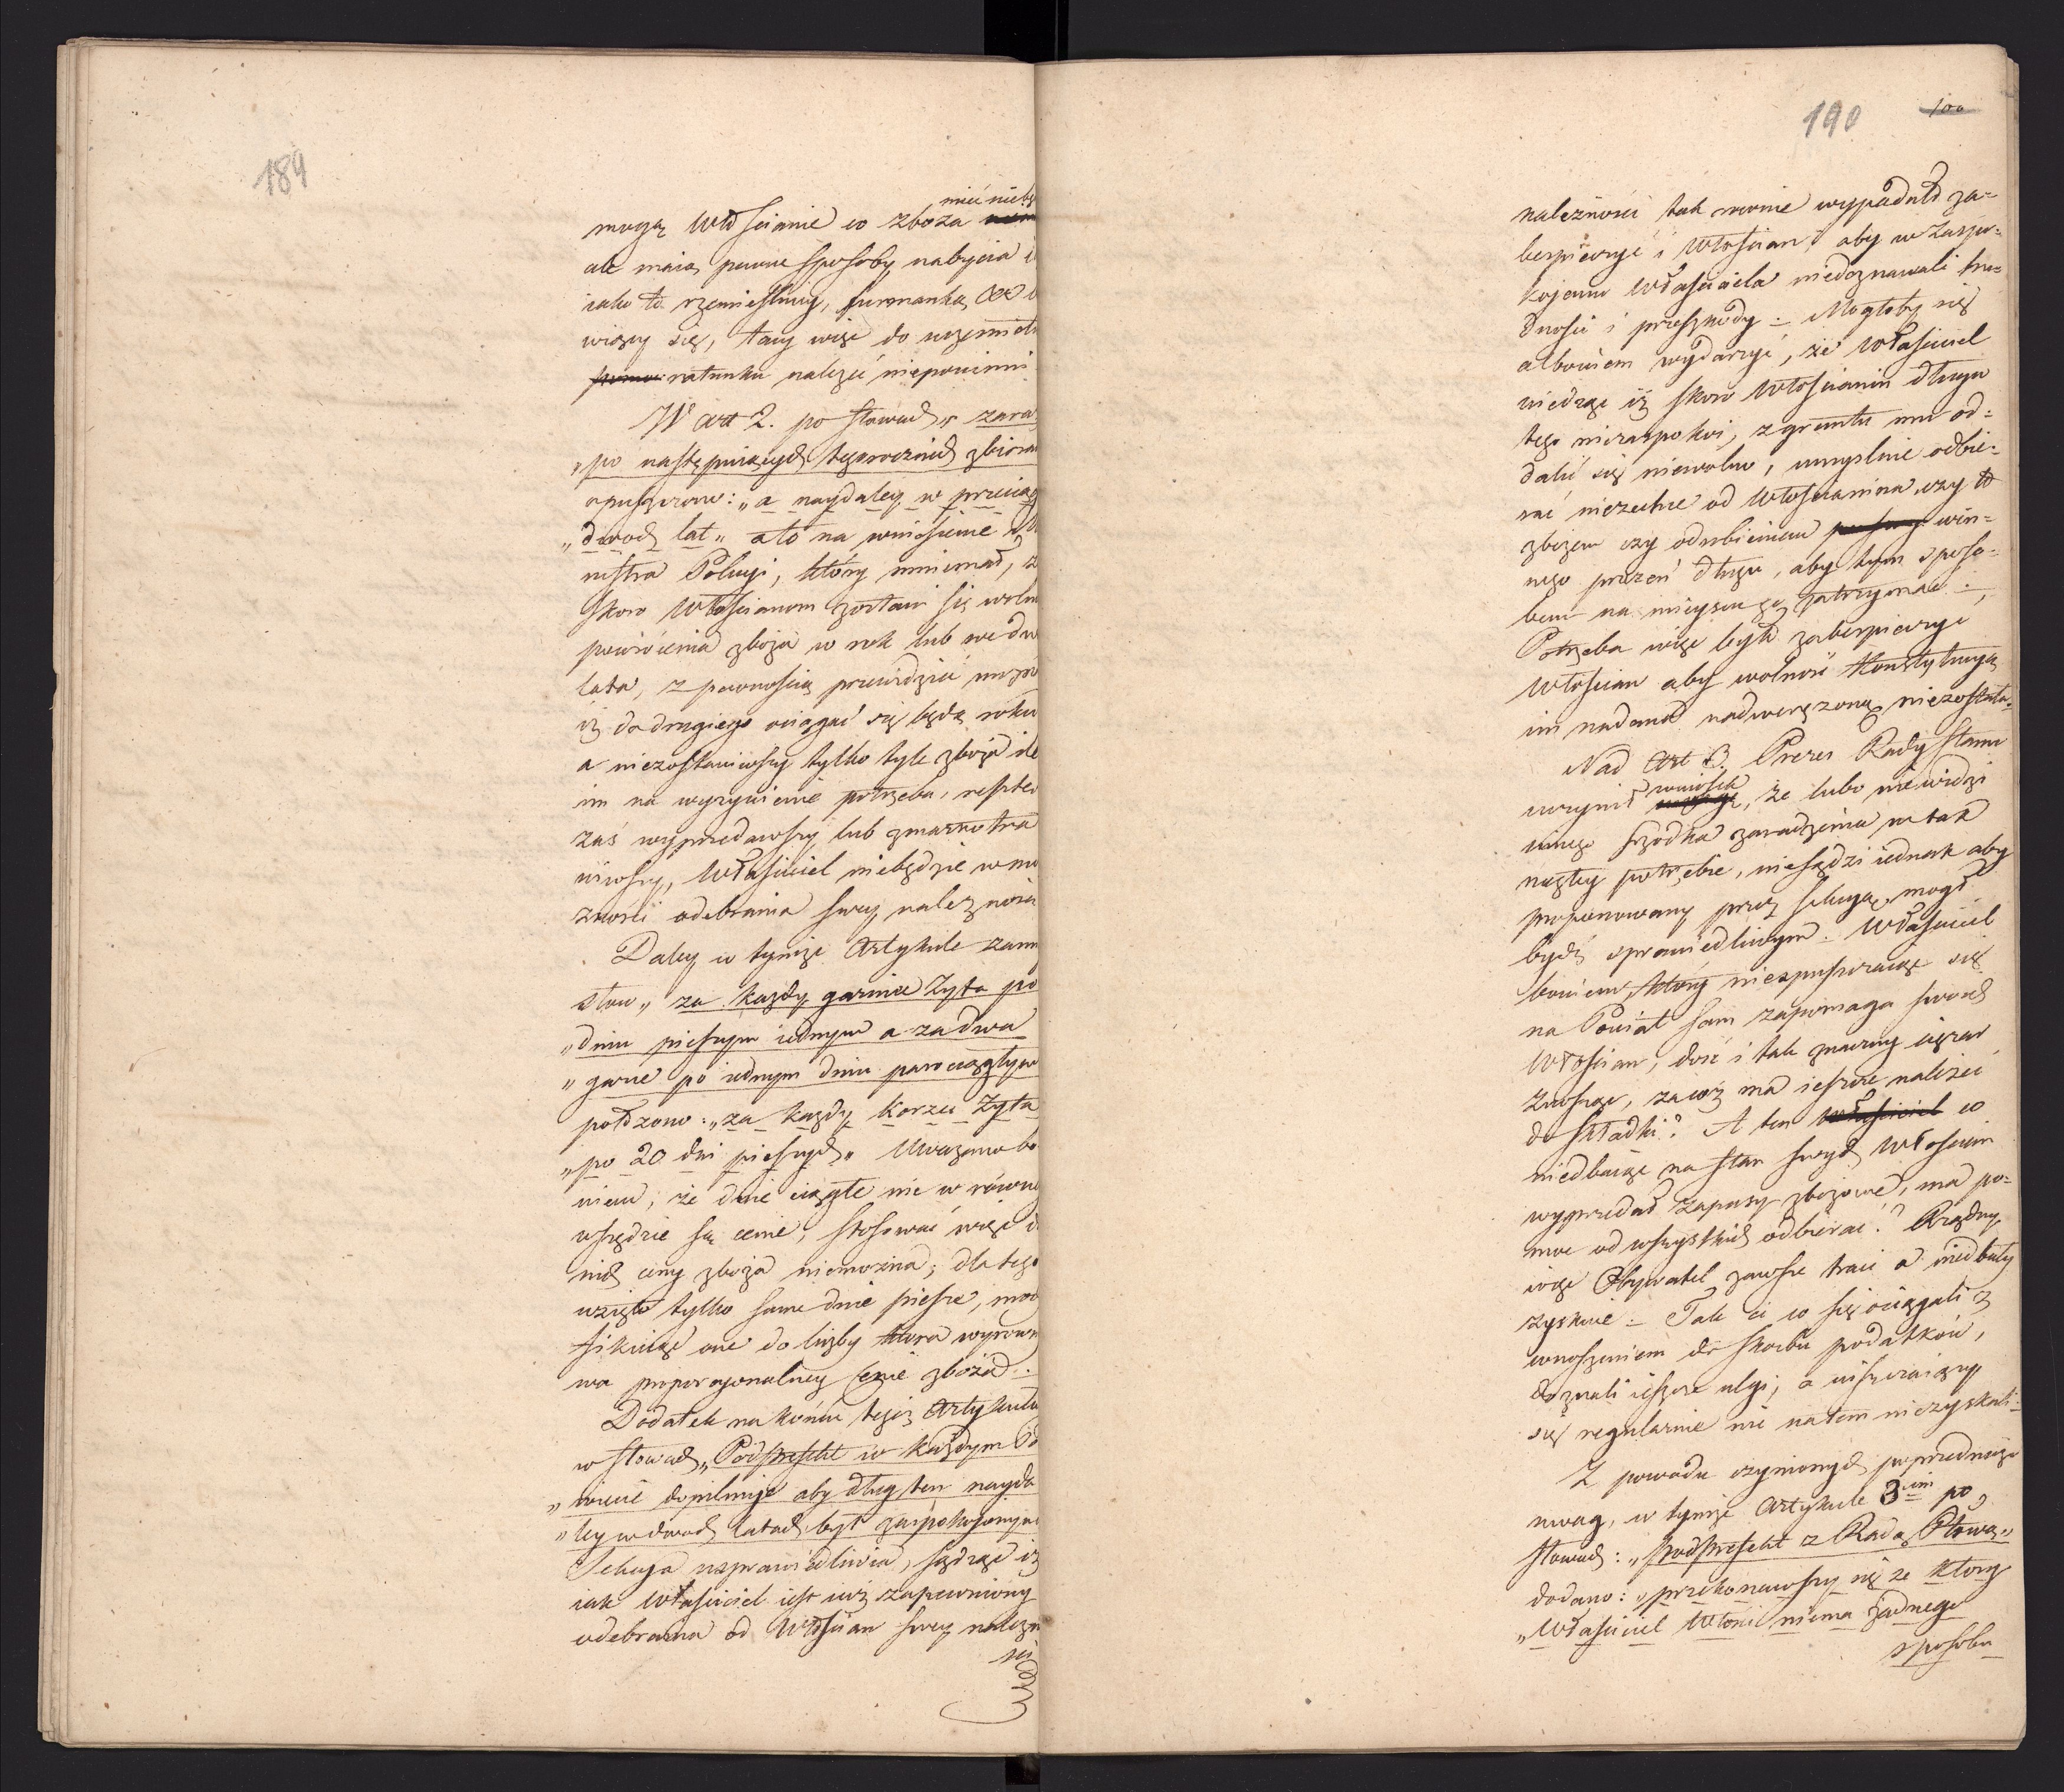 189
mieć nie bę
mogą Włościanie co zboża
ale maią pewne sposoby nabycia i
iako to rzemieślnicy, furmanką
wiący się, tacy więc do wzemiek
ratunku należeć niepowinni
W art 2. po słowach „zara
„po następuiących tegorocznich zbiora
opuszczono: „a naydaley w przeciąg
„dwoch lat„ a to na wniesienie Mi
nistra Policyi, który mniemał, że
skoro Włościanom zostawi się wolne
powrócenia zboża w rok lub we dw
lata, z pewnością przewidzieć można
iż do drugiego ociągać się będą roku
a niezostawiwszy tylko tyle zboża ile
im na wyżywienie potrzeba, resztę
zaś wyprzedawszy lub zmarnotra
wiwszy, Właściciel niebędzie w mo
żności odebrania swey należności
Daley w tymże Artykule zami
słow „za każdy garniec Żyta po
„dniu pieszym iednym a za dwa
„garce po iednym dniu parociągłym
położono: „za każdy Korzec Żyta
„po 20 dni pieszych„ Uważano bo
wiem, że dnie ciągłe nie w równey
wszędzie są cenie, stosować więc d
nich ceny zboża niemożna; dla tego
wzięto tylko same dnie piesze, mod
fikuiąc one do liczby która wyrówn
wa proporcyonalney Cenie zboża.
Dodatek na końcu tegoż Artykułu
w słowach „Podprefekt w każdym Po
„wiecie dopilnuje aby dług ten nayda
„ley w dwoch latach był zaspokojonym
Sekcya usprawiedliwia, sądząc iż
iak Właściciel iest iuż zapewniony
odebrania od Włościan swey należn
ści
190
100
należności tak rownie wypadało za=
bezpieczyć i Włościan, aby w zaspo=
kojeniu Właściciela niedoznawali tru=
dności i przeszkody. Mogłoby się
albowiem wydarzyć, że Właściciel
wiedząc iż skoro Włościanin długu
tego niezaspokoi, z gruntu mu od=
dalić się niewolno, umyślnie odbie=
rać niezechce od Włościanina czy to
zbożem czy odrobieniem win=
nego przezeń długu, aby tym sposo=
bem na mieyscu go zatrzymać.
Potrzeba więc było zabezpieczyć
Włościan aby wolność Konstytucyą
im nadana nadwerężoną niezostała.
Nad Art 3. Prezes Rady Stanu
wniosek
uczynił, że lubo niewidzi
innego szrodka zaradzenia w tak
nagłey potrzebie, niesądzi iednak aby
proponowany przez Sekcyą, mogł
bydź sprawiedliwym. Właściciel
bowiem, który niespuszczaiąc się
na Powiat sam zapomaga swoich
Włościan, dość i tak znaczny ciężar
znosząc, za coż ma ieszcze należeć
do składki? A ten co
niedbaiąc na stan swych Włościan
wyprzedał zapasy zbożowe, ma po=
moc od wszystkich odbierać? Rządny
więc Obywatel zawsze traci a niedbały
zyskuie. Tak ci co się ociągali z
wnoszeniem do skarbu podatków,
doznali ieszcze ulgi, a uiszczaiący
się regularnie nic na tem niezyskali.
Z powodu czynionych poprzedniczo
uwag, w tymże Artykule 3im po
słowach: „podprefekt z Radą Ptową„
dodano: „przekonawszy się że który
„Właściciel Włości niema żadnego
sposobu